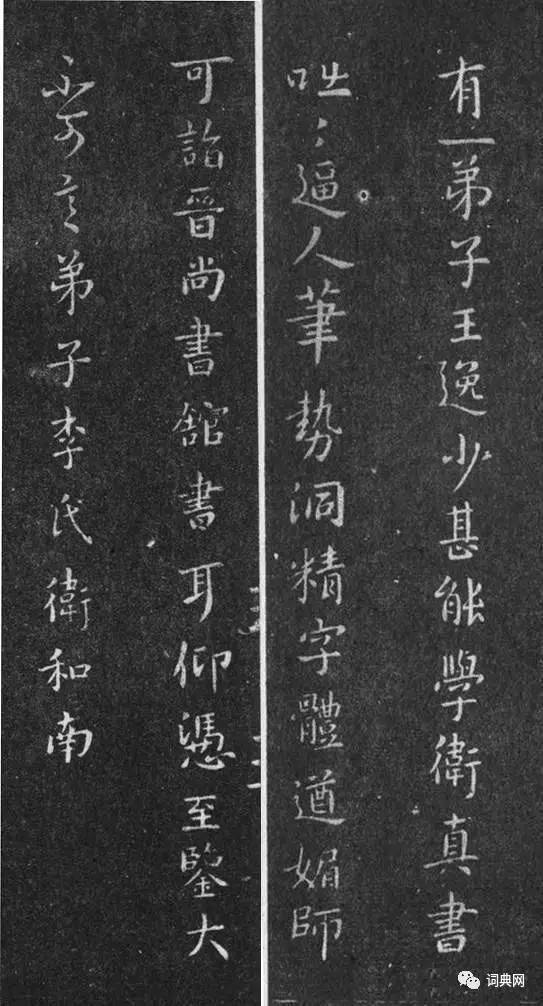 有一弟子王逸少甚能學衛真書
咄〻逼人筆勢洞精字體遒媚師
可詣晉尚書館書耳仰憑至鑒大
不可言弟子李氏衛和南
词典网